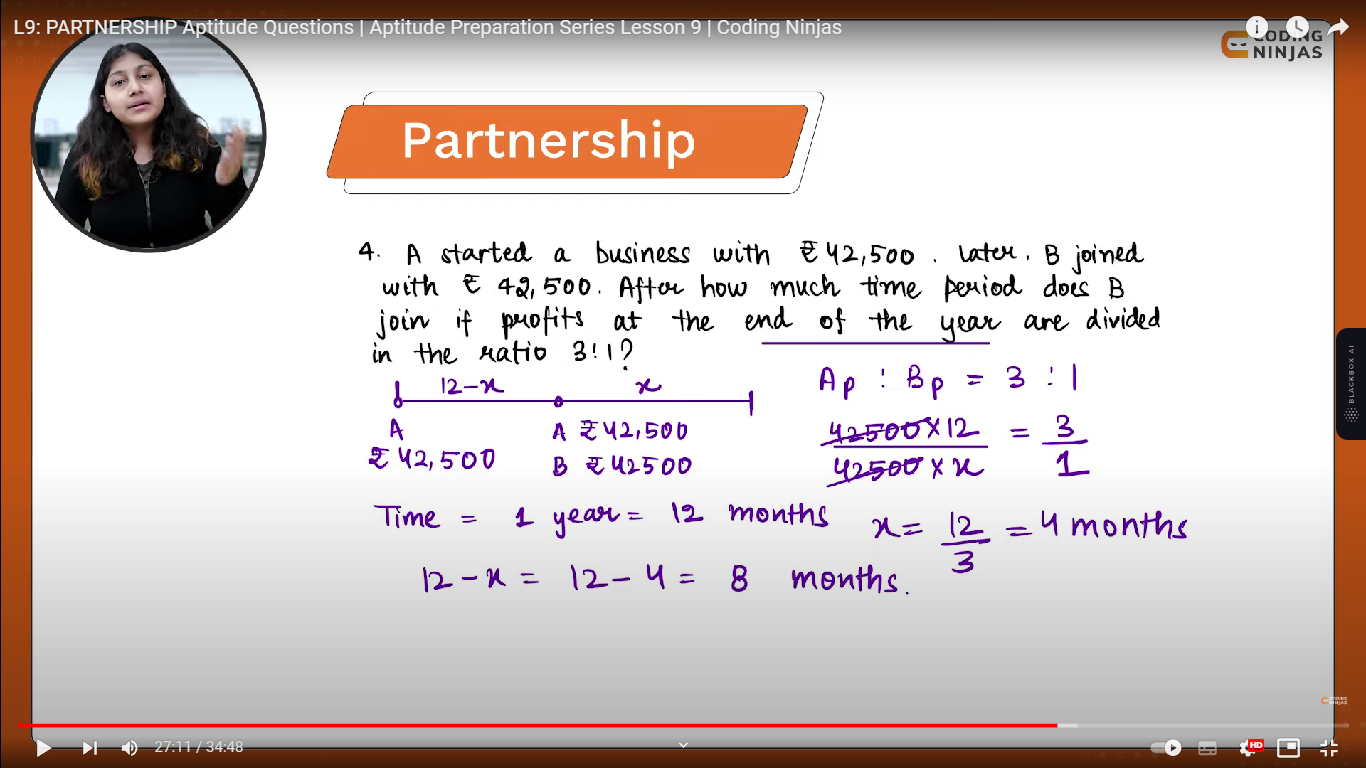 L9: PARTNERSHIP Aptitude Questions | Aptitude Preparation Series Lesson 9 | Coding Ninjas
CODING
NINJAS
Partnership
4. A started a business with ₹ 42,500. Later. B joined
with ₹ 42,500. After how much time period does B
join if profits at the end of the year are divided
in the ratio 3:1?
12-x x
A A ₹ 42,500
₹ 42,500 B ₹ 42500
Ap : Bp = 3 : 1
42500 × 12 = 3
42500 × x 1
Time = 1 year = 12 months
x = 12 = 4 months
3
12 - x = 12 - 4 = 8 months.
BLACKBOX AI
CODING
NINJAS
27:11 / 34:48
HD